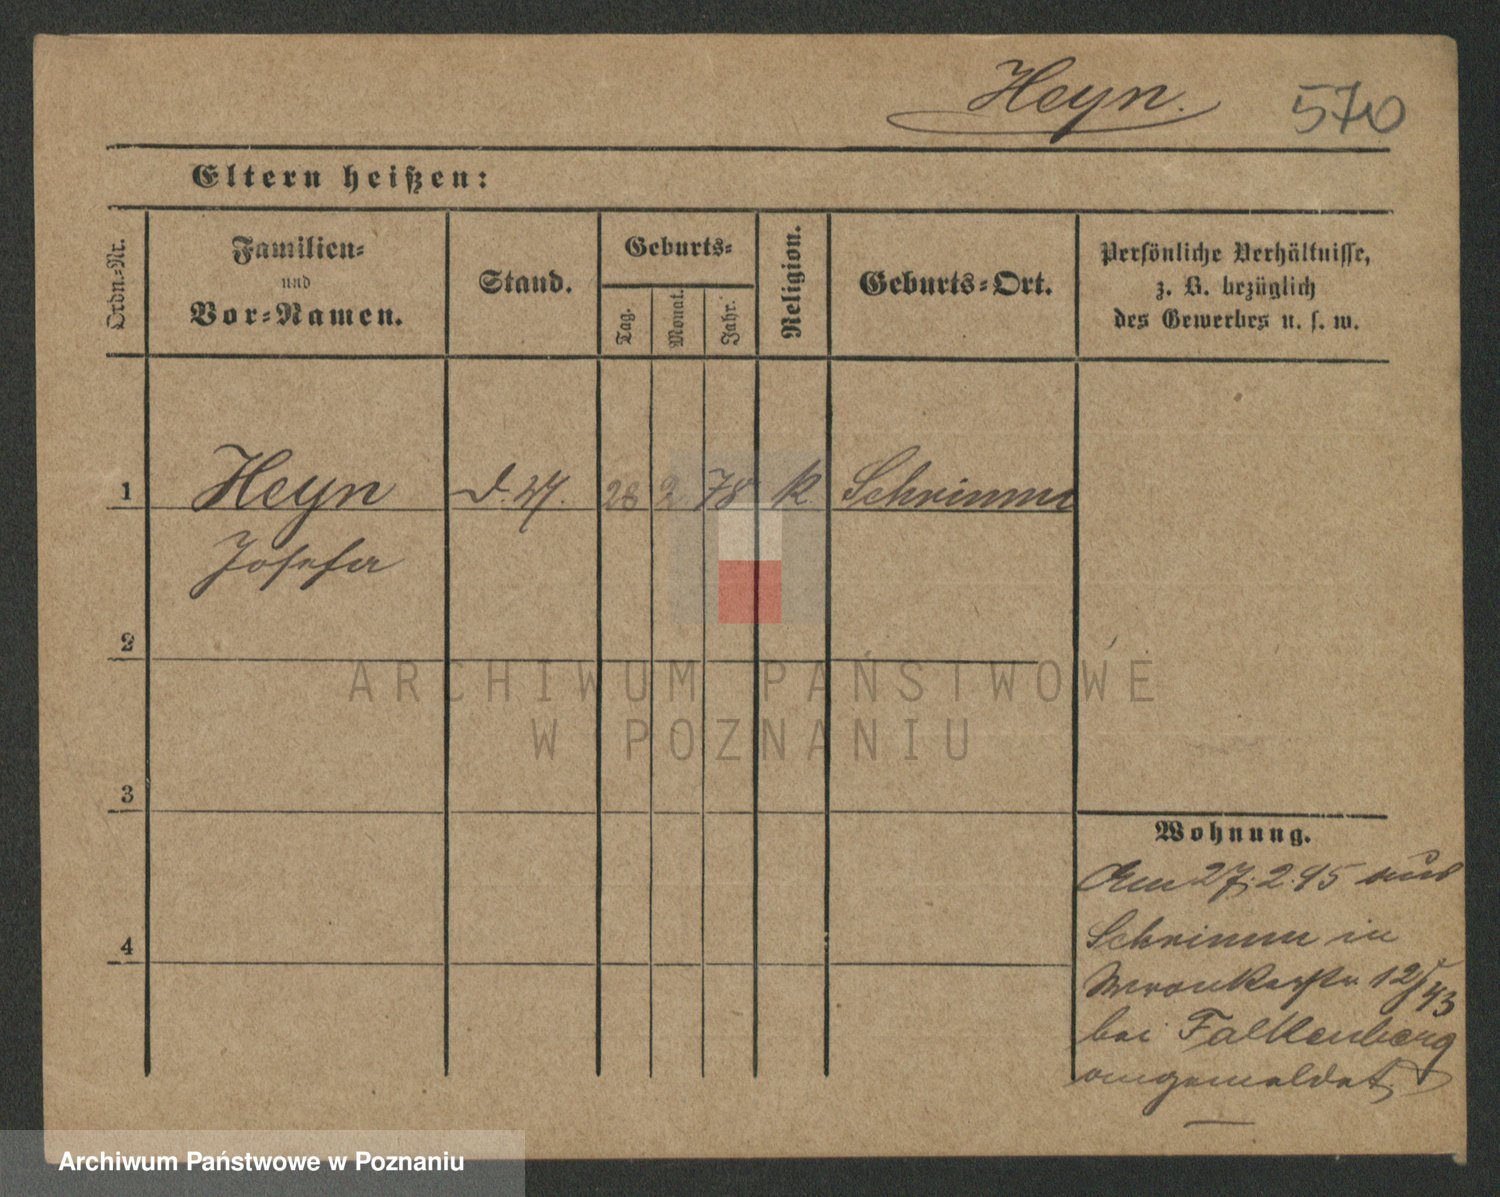 Heyn. 570
Eltern heißen:
Ordn.-Nr.
Familien-
und
Vor-Namen.
Stand.
Geburts-
Tag.
Monat.
Jahr.
Religion.
Geburts-Ort.
Persönliche Verhältnisse,
z. B. bezüglich
des Gewerbes u. s. w.
1 Heyn 2 78 k. Schrimm
Josefa
2
3
4
Wohnung.
Am 27.2.95 aus
Schrimm in
Wronkerstr. 12
bei Falkenberg
angemeldet.
ARCHIWUM PAŃSTWOWE
W POZNANIU
Archiwum Państwowe w Poznaniu